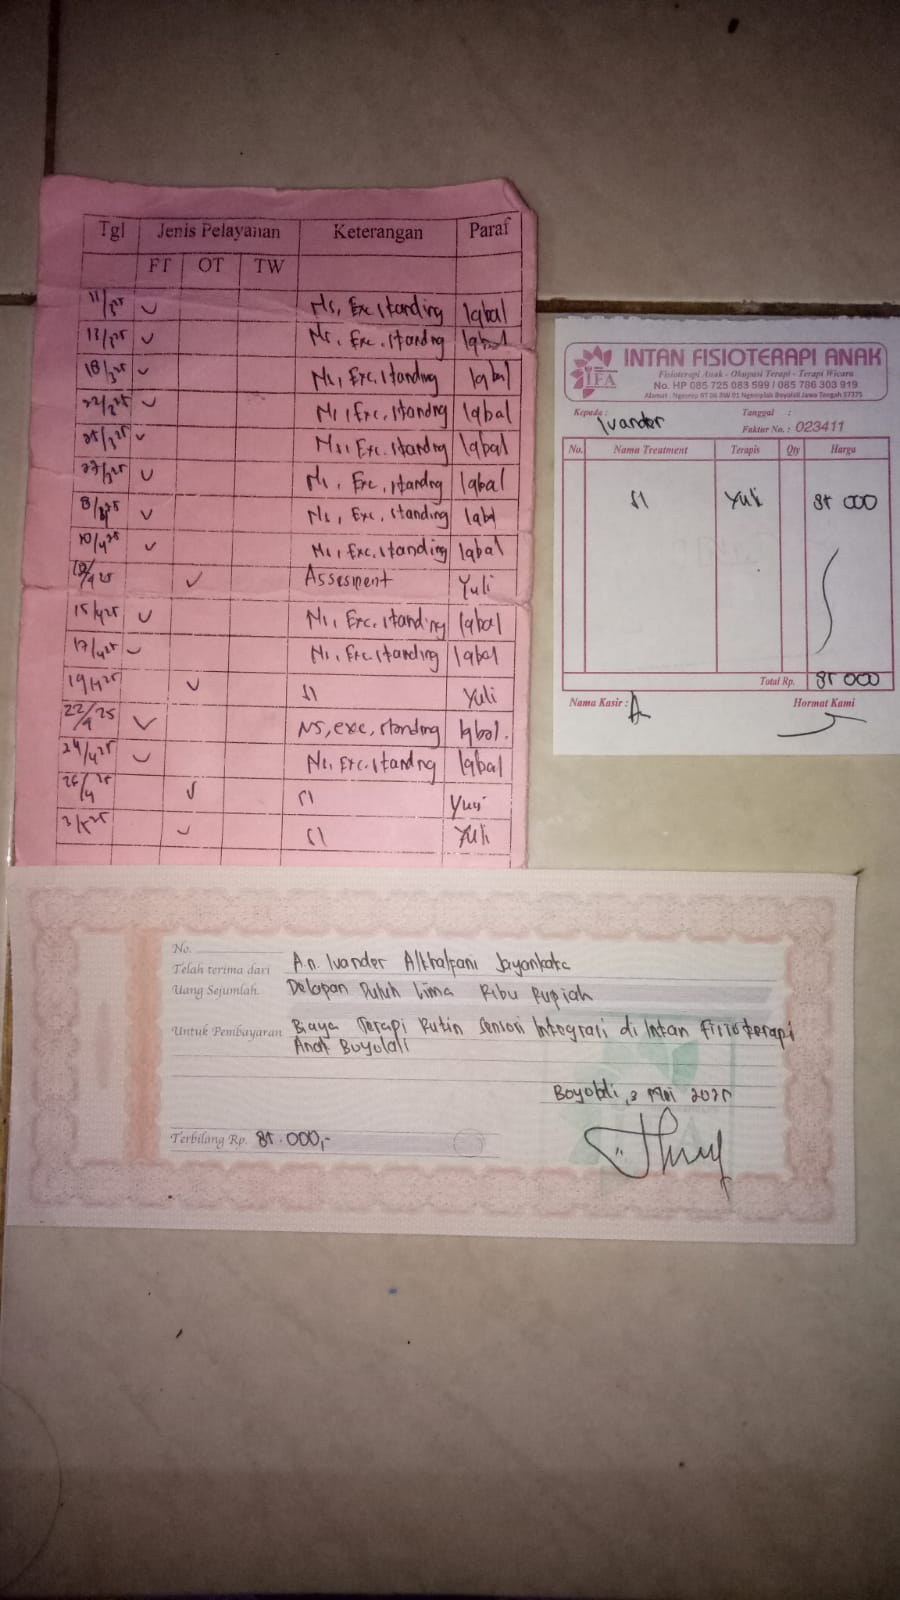 Tgl Jenis Pelayanan Keterangan Paraf
FT OT TW
11/3 25 ✓ Ns, Exc Standing Iqbal
13/3 25 ✓ Ns, Exc, Standing Iqbal
18/3 25 ✓ Ns, Exc, Standing Iqbal
22/3 25 ✓ Ns, Exc. Standing Iqbal
25/3 25 ✓ Ns, Exc. Standing Iqbal
27/3 25 ✓ Ns, Exc, Standing Iqbal
8/ 25 ✓ Ns, Exc, Standing Iqbal
10/4 25 ✓ Ns, Exc. Standing Iqbal
/4 25 ✓ Assesment Yuli
15/4 25 ✓ Ns, Exc. Standing Iqbal
17/4 25 ✓ Ns, Exc. Standing Iqbal
19/4 25 ✓ SI Yuli
22/4 25 ✓ NS, exc, standing Iqbal.
24/4 25 ✓ Ns, Exc. Standing Iqbal
26/4 25 ✓ SI Yuli
3/5 25 ✓ SI Yuli
INTAN FISIOTERAPI ANAK
IFA
Fisioterapi Anak - Okupasi Terapi - Terapi Wicara
No. HP 085 725 083 599 / 085 786 303 919
Alamat : Ngesrep RT 06 RW 01 Ngemplak Boyolali Jawa Tengah 57375
Kepada : Ivander Tanggal :
Faktur No. : 023411
No. Nama Treatment Terapis Qty Harga
SI Yuli 85 000
Total Rp. 85 000
Nama Kasir : Hormat Kami
No.
Telah terima dari A.n. Ivander Alkhalfani Jayantaka
Uang Sejumlah Delapan Puluh Lima Ribu Rupiah
Untuk Pembayaran Biaya Terapi Rutin Sensori Integrasi di Intan Fisioterapi
Anak Boyolali
Boyolali, 3 Mei 2025
Terbilang Rp. 85.000,-